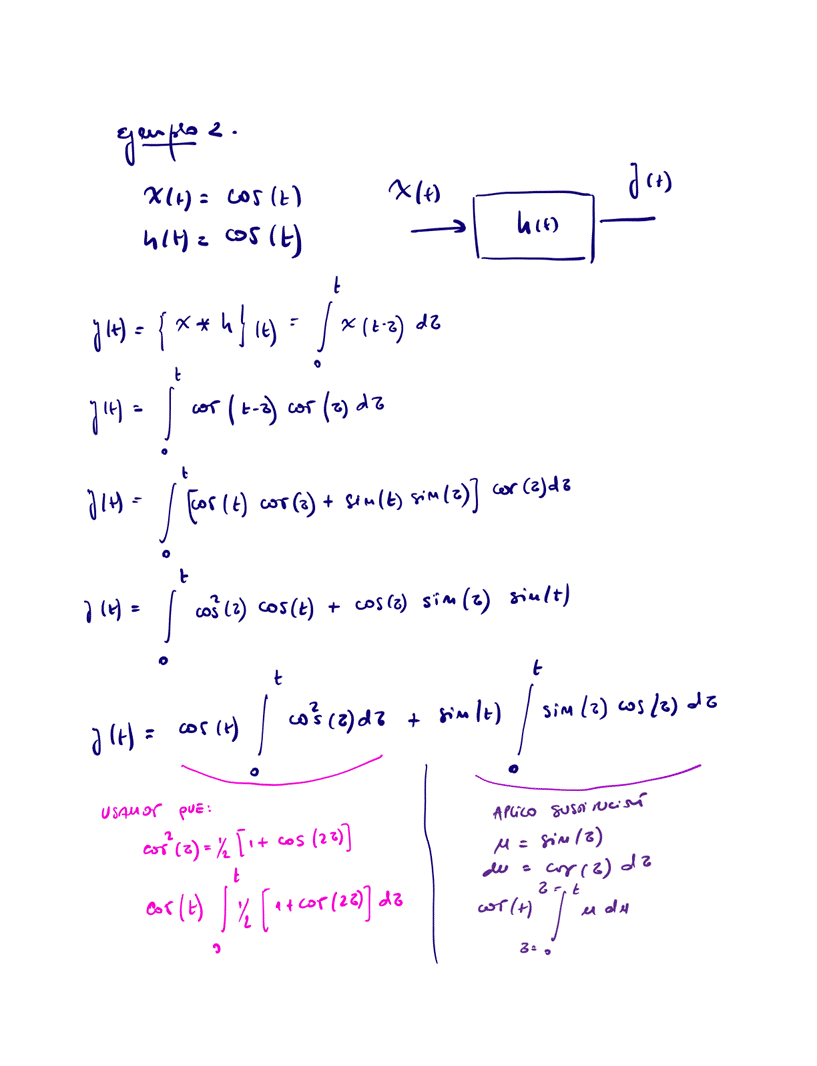 Ejemplo 2.
x(t) = cos(t)
h(t) = cos(t)
x(t) h(t) y(t)
y(t) = {x * h}(t) = ∫₀ᵗ x(t-τ) dτ
y(t) = ∫₀ᵗ cos(t-τ) cos(τ) dτ
y(t) = ∫₀ᵗ [cos(t) cos(τ) + sin(t) sin(τ)] cos(τ) dτ
y(t) = ∫₀ᵗ cos²(τ) cos(t) + cos(τ) sin(τ) sin(t)
y(t) = cos(t) ∫₀ᵗ cos²(τ) dτ + sin(t) ∫₀ᵗ sin(τ) cos(τ) dτ
USAMOS QUE:
cos²(τ) = 1/2 [1 + cos(2τ)]
cos(t) ∫₀ᵗ 1/2 [1 + cos(2τ)] dτ
APLICO
μ = sin(τ)
dμ = cos(τ) dτ
cos(t) ∫_{τ=0}^{τ=t} μ dμ